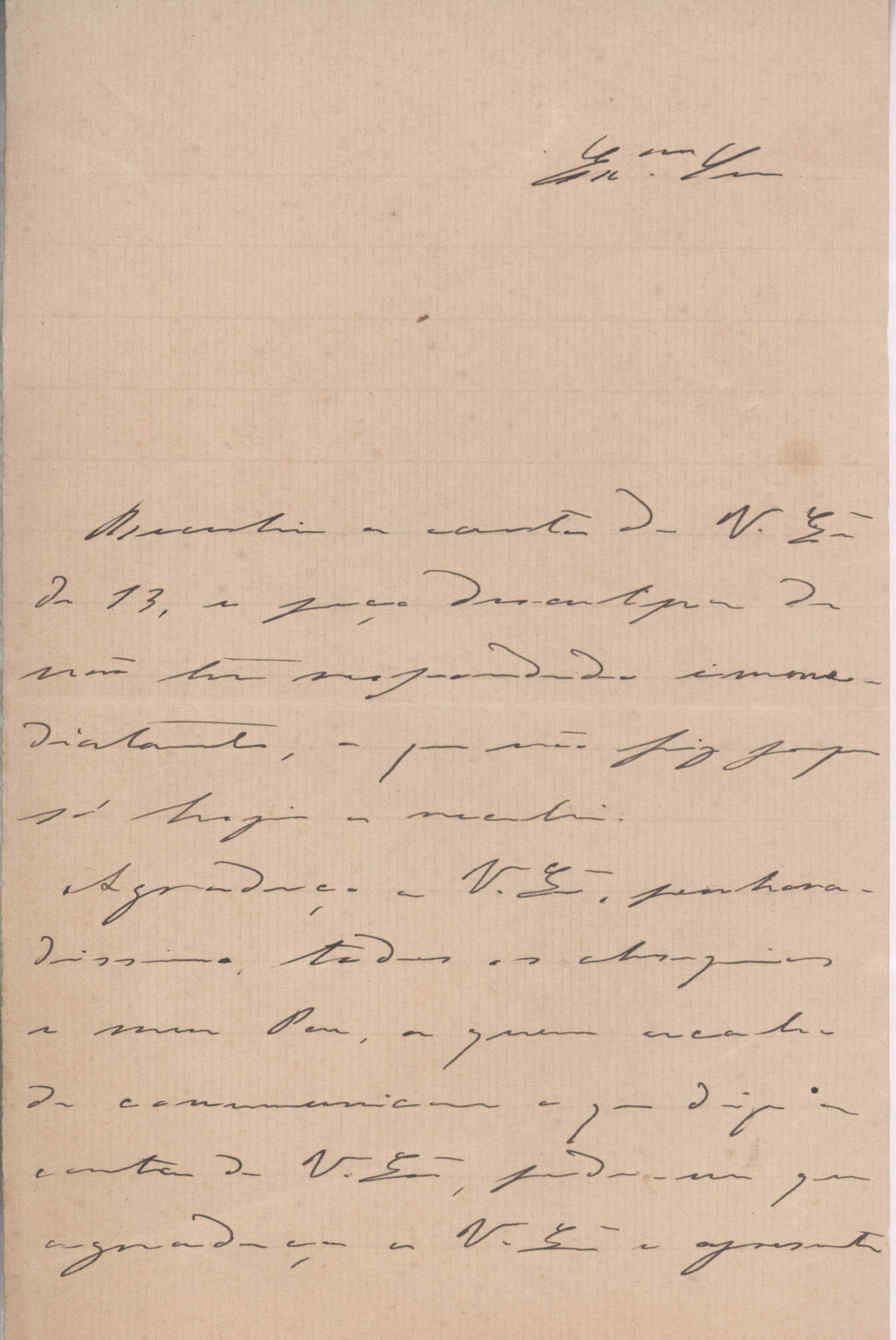 Ex.mo Snr
Recebi a carta de V. Ex.ª
de 13, e peço desculpa de
não ter respondido imme-
diatamente, o que não fiz porque
só hoje a recebi.
Agradeço a V. Ex.ª, penhora-
dissimo, todos os obsequios
e meu Pae, a quem acabo
de communicar o que diz a
carta de V. Ex.ª, pede-me que
agradeça a V. Ex.ª e apresente